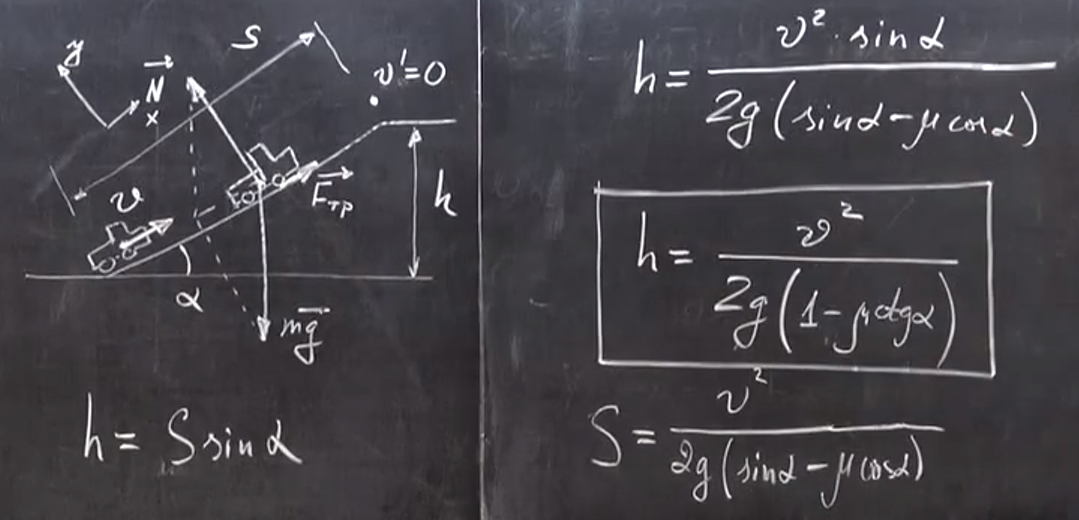 y
S
N
x
v'=0
v
F тр
h
α
mg
h = S sin α
h = v² · sin α / 2g (sin α - μ cos α)
h = v² / 2g (1 - μ ctg α)
S = v² / 2g (sin α - μ cos α)